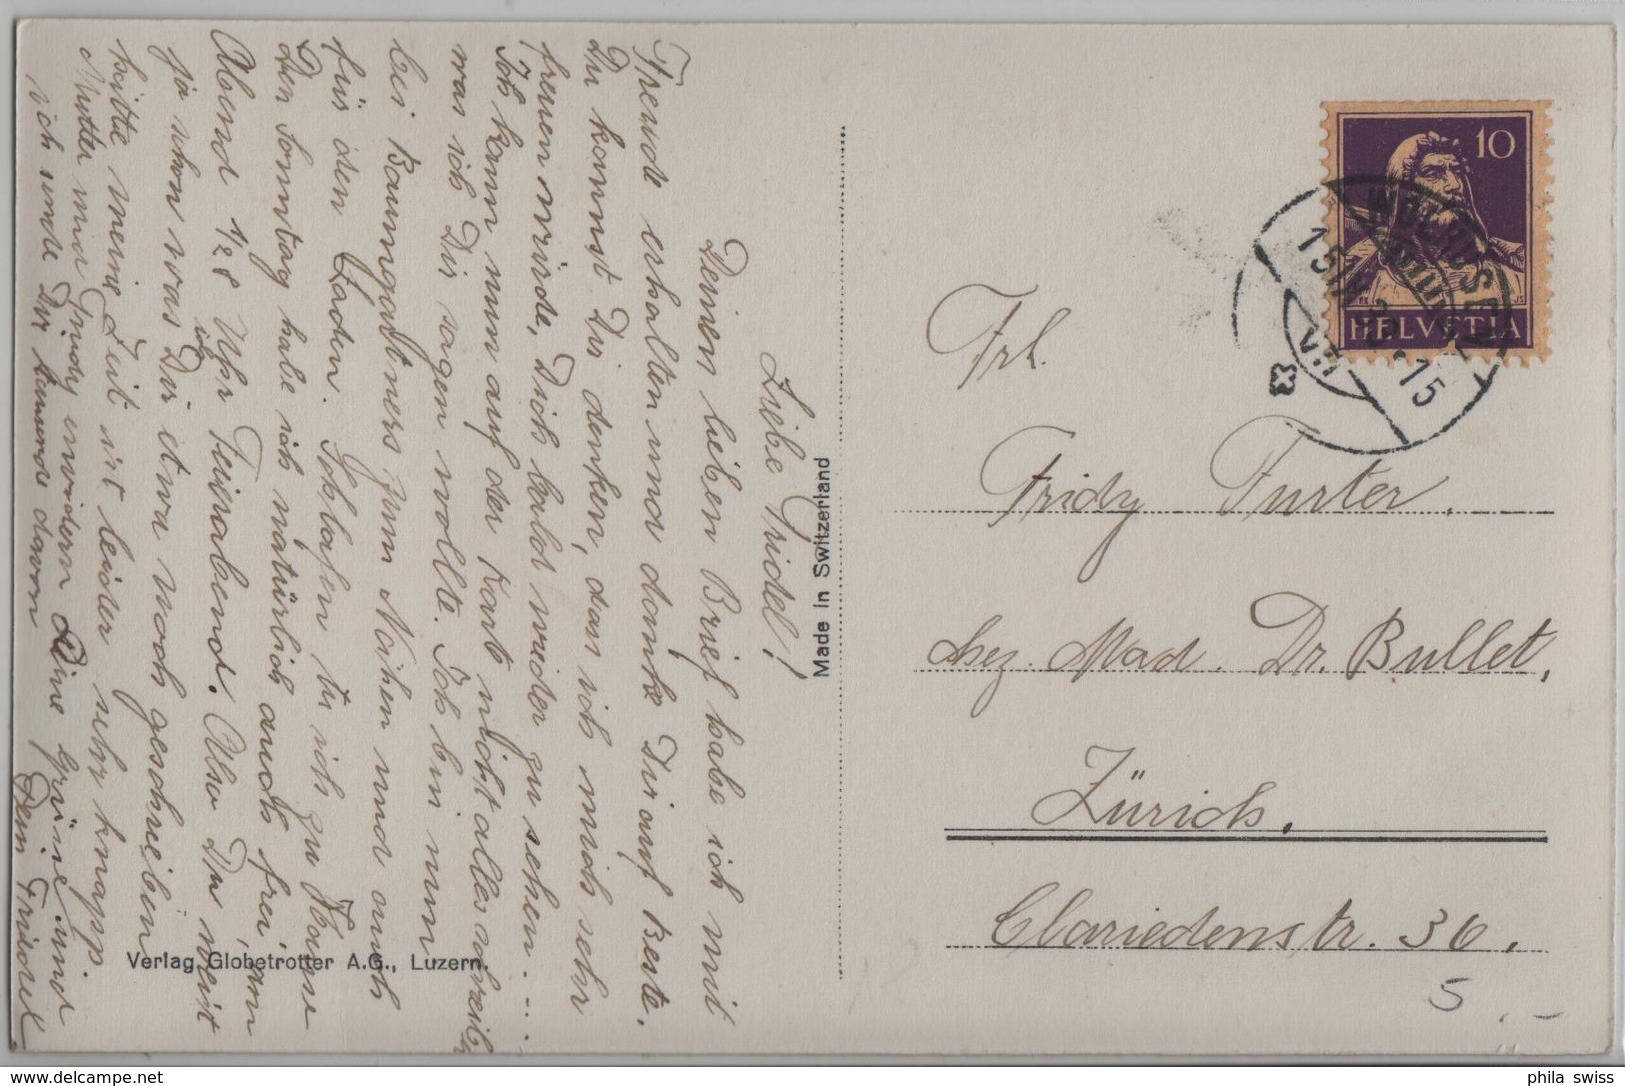 Liebe Fridel!
Deinen lieben Brief habe ich mit
Freude erhalten und danke Dir aufs Beste.
Du kannst Dir denken, dass ich mich sehr
freuen würde, Dich bald wieder zu sehen....
Ich kann nun auf der Kart nicht alles schreib
was ich Dir sagen wollte. Ich bin nun
bei Baumgartners zum Nähen und auch
für den Laden. Schlafen tu ich zu Hause
Den Sonntag habe ich natürlich auch frei, am
Abend ½8 Uhr Feierabend. Also Du weist
ja schon was Dir etwa noch geschreiben
hätte meine Zeit ist leider sehr knapp.
Mutter und Trudy erwidern Deine Grüsse und
ich sende Dir tausende davon
Dein Fridel
Made in Switzerland
Verlag Globetrotter A.G., Luzern.
10
HELVETIA
WOLHUSEN
15
Frl.
Fridy Furter.
bez. Mad. Dr. Bullet,
Zürich.
Claridenstr. 36.
5.-
phila swiss
https://www.delcampe.net/